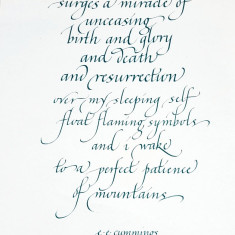 surges a miracle of
unceasing
birth and glory
and death
and resurrection
over my sleeping self
float flaming symbols
and i wake
to a perfect patience
of mountains
e e cummings